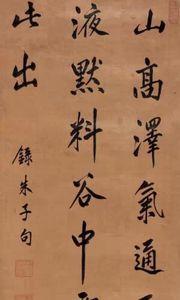 山高澤氣通
液默料谷中
此出
錄朱子句